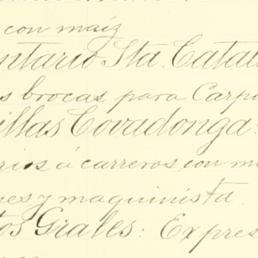 con maiz
ntario Sta. Catal
s brocas para Carpi
illas Covadonga:
rios á carreros con m
nes y maquinista.
tos Grales: Expres